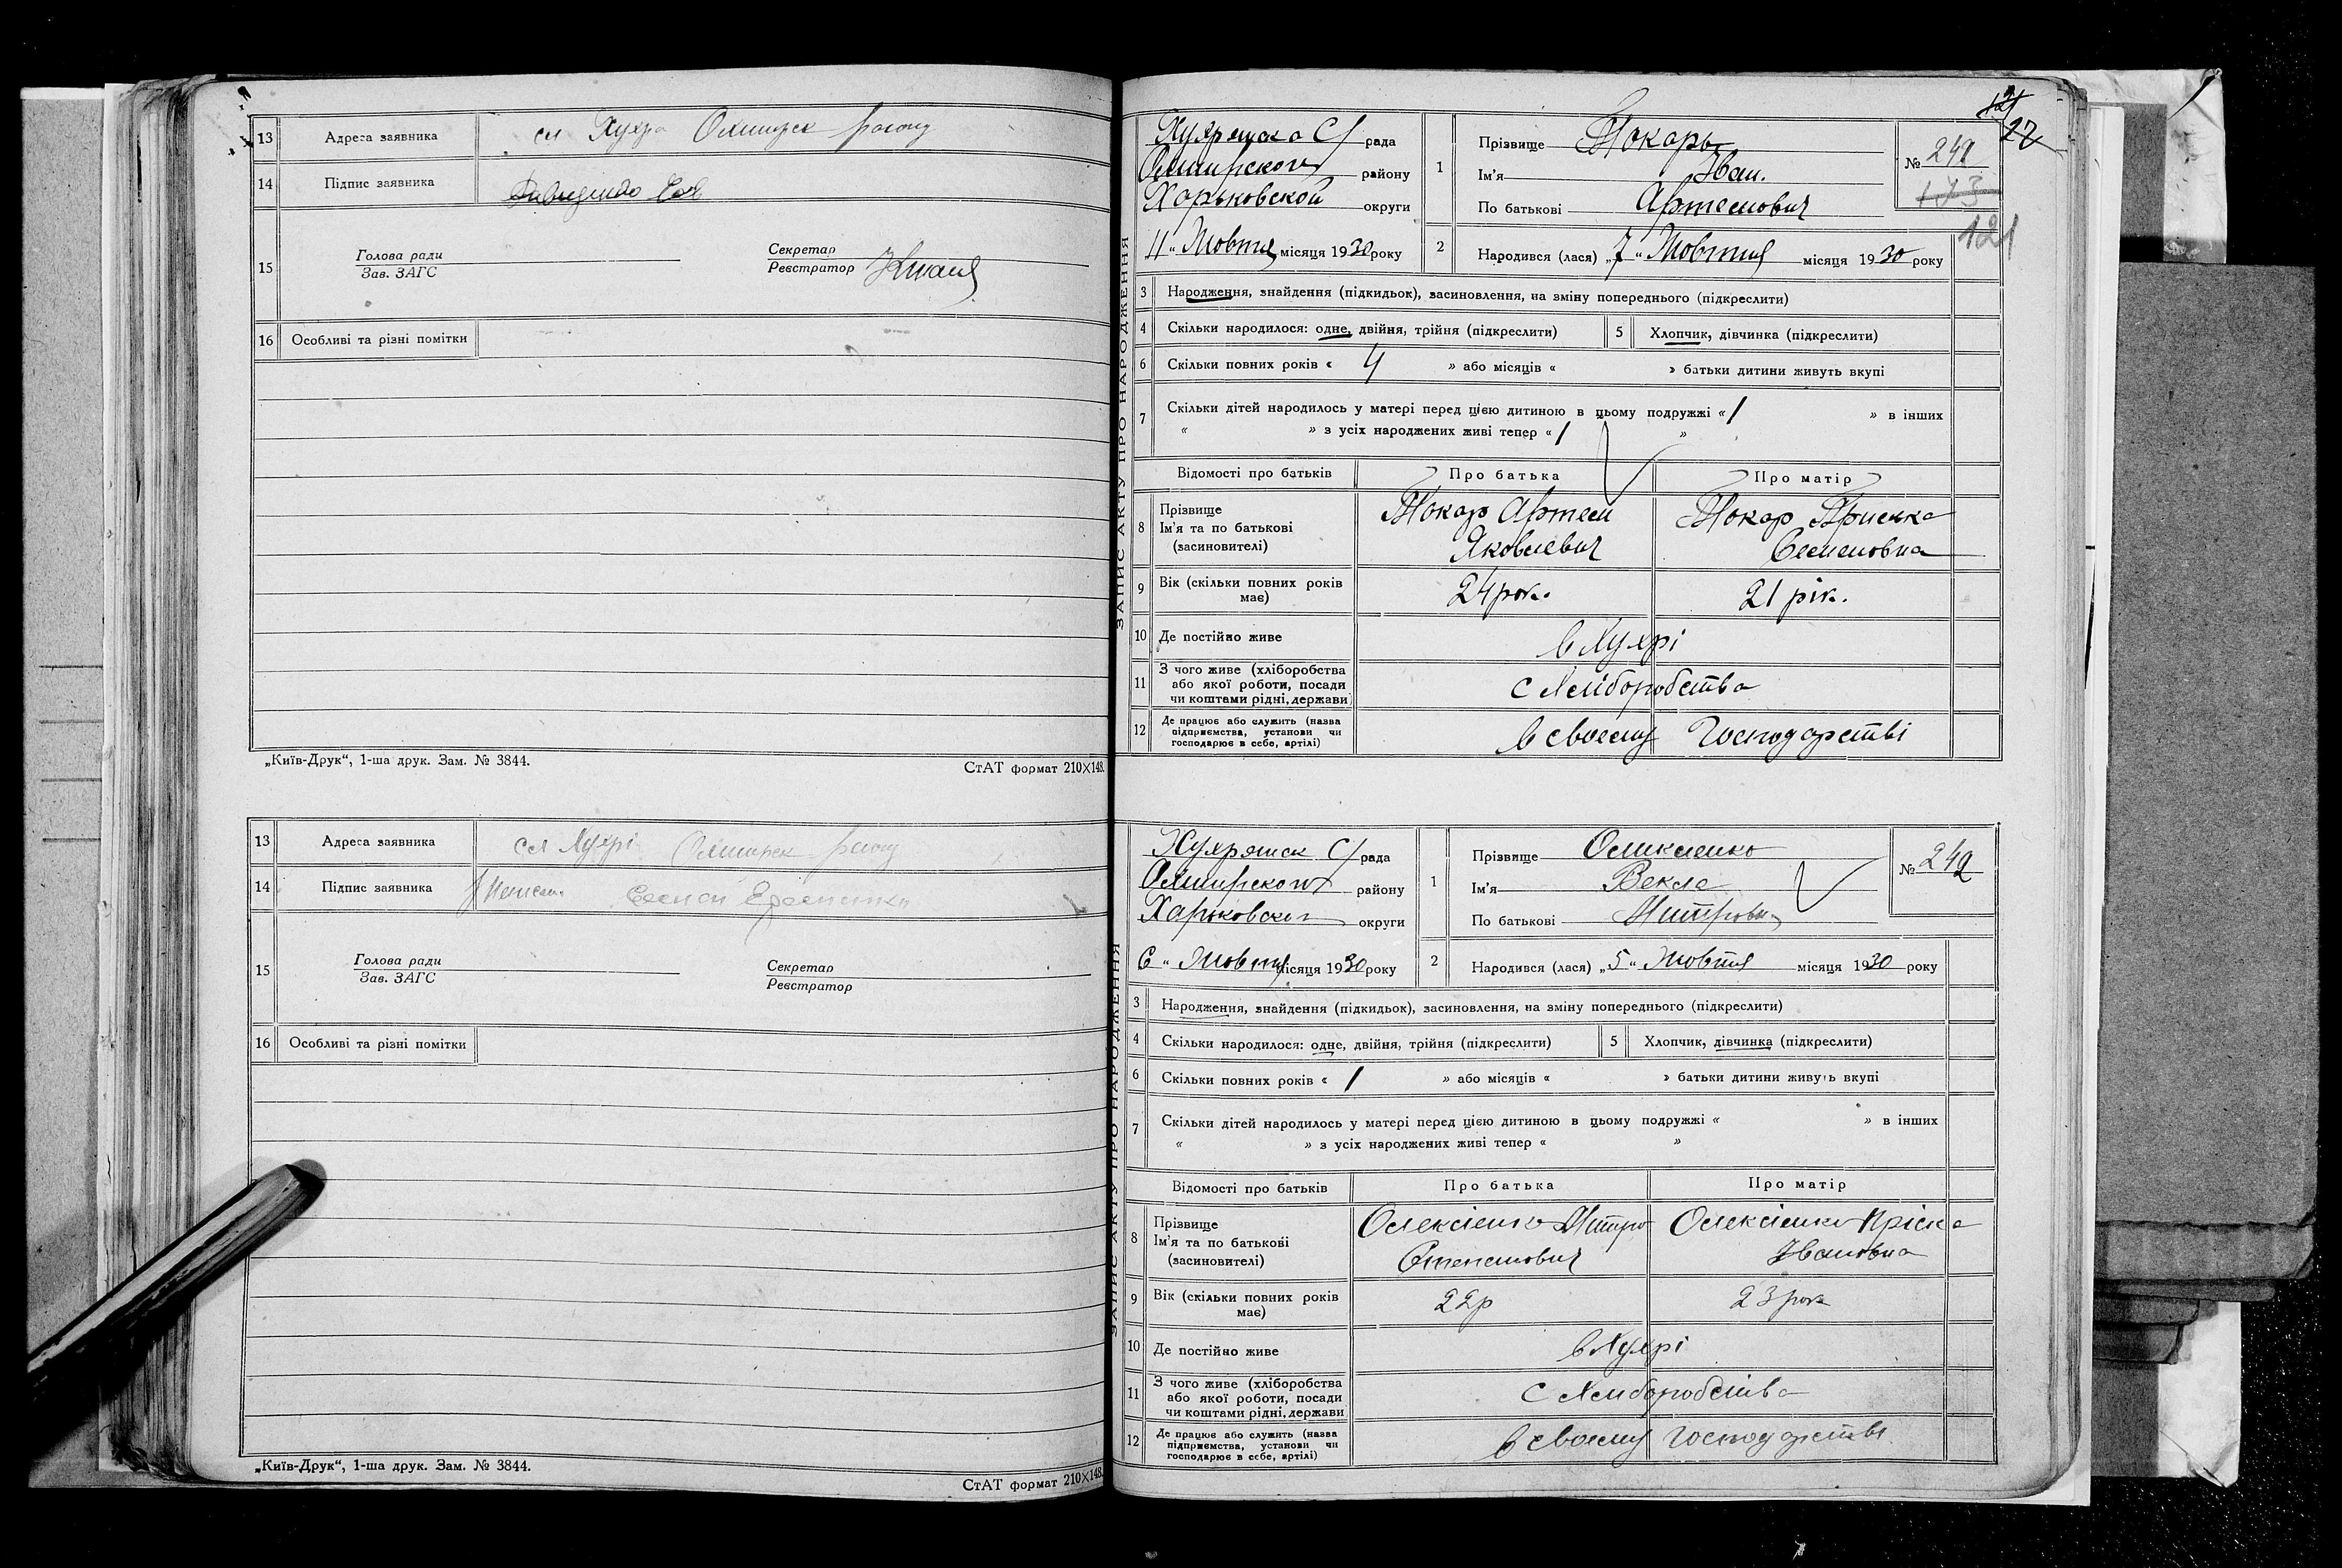 13 Адреса заявника сл Хухра Охтирск району
14 Підпис заявника
15 Голова ради
Зав. ЗАГС
Секретар
Реєстратор
16 Особливі та різні помітки
„Київ-Друк“, 1-ша друк. Зам. № 3844.
СтАТ формат 210×148.
13 Адреса заявника сл Хухрі Охтирск району
14 Підпис заявника
15 Голова ради
Зав. ЗАГС
Секретар
Реєстратор
16 Особливі та різні помітки
„Київ-Друк“, 1-ша друк. Зам. № 3844.
СтАТ формат 210×148.
27
ЗАПИС АКТУ ПРО НАРОДЖЕННЯ
Хухрянска С/рада
Охтирского району
Харьковской округи
11 “ Жовтня місяця 1930 року
1 Прізвище Токарь
Ім'я Іван.
По батькові Артемович
№ 241
173
121
2 Народився (лася) „7“ Жовтня місяця 1930 року
3 Народження, знайдення (підкидьок), засиновлення, на зміну попереднього (підкреслити)
4 Скільки народилося: одне, двійня, трійня (підкреслити) 5 Хлопчик, дівчинка (підкреслити)
6 Скільки повних років « 4 » або місяців « » батьки дитини живуть вкупі
7 Скільки дітей народилось у матері перед цією дитиною в цьому подружжі « 1 » в інших
« » з усіх народжених живі тепер « 1 »
Відомості про батьків Про батька Про матір
8 Прізвище
Ім'я та по батькові
(засиновителі)
Токар Артем
Яковлевич
Токар Приська
Семеновна
9 Вік (скільки повних років
має) 24 рок. 21 рік.
10 Де постійно живе в Хухрі
11 З чого живе (хліборобства
або якої роботи, посади
чи коштами рідні, держави)
с Хліборобства
12 Де працює або служить (назва
підприємства, установи чи
господарює в себе, артілі)
в своєму Господарстві
ЗАПИС АКТУ ПРО НАРОДЖЕННЯ
Хухрянск С/рада
Охтирского району
Харьковской округи
6 “ Жовтня місяця 1930 року
1 Прізвище Оликсиенко
Ім'я Векла
По батькові Митровн
№ 242
2 Народився (лася) „5“ Жовтня місяця 1930 року
3 Народження, знайдення (підкидьок), засиновлення, на зміну попереднього (підкреслити)
4 Скільки народилося: одне, двійня, трійня (підкреслити) 5 Хлопчик, дівчинка (підкреслити)
6 Скільки повних років « 1 » або місяців « » батьки дитини живуть вкупі
7 Скільки дітей народилось у матері перед цією дитиною в цьому подружжі « » в інших
« » з усіх народжених живі тепер « »
Відомості про батьків Про батька Про матір
8 Прізвище
Ім'я та по батькові
(засиновителі)
Олексієнко Митро
Степанович
Олексієнко Пріска
Івановна
9 Вік (скільки повних років
має) 22р 23 рок
10 Де постійно живе в Хухрі
11 З чого живе (хліборобства
або якої роботи, посади
чи коштами рідні, держави
с Хлиборобства
12 Де працює або служить (назва
підприємства, установи чи
господарює в себе, артілі)
в своєму Господарстві